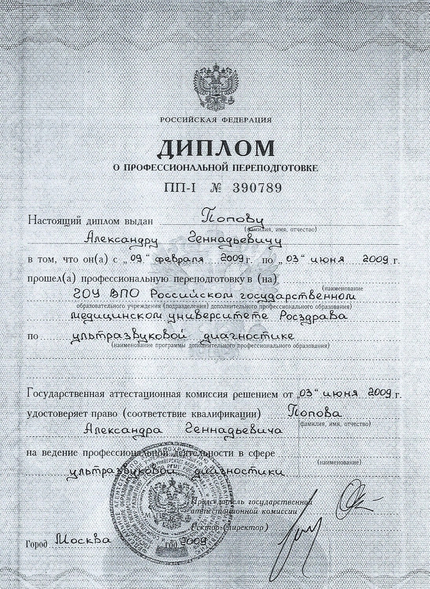 РОССИЙСКАЯ ФЕДЕРАЦИЯ
ДИПЛОМ
О ПРОФЕССИОНАЛЬНОЙ ПЕРЕПОДГОТОВКЕ
ПП-I № 390789
Настоящий диплом выдан Попову
(фамилия, имя, отчество)
Александру Геннадьевичу
в том, что он(а) с „09“ февраля 2009 г. по „03“ июня 2009 г.
прошел(а) профессиональную переподготовку в (на)
(наименование
ГОУ ВПО Российском государственном
образовательного учреждения (подразделения) дополнительного профессионального образования)
медицинском университете Росздрава
по ультразвуковой диагностике
(наименование программы дополнительного профессионального образования)
Государственная аттестационная комиссия решением от „03“ июня 2009 г.
удостоверяет право (соответствие квалификации) Попова
(фамилия, имя, отчество)
Александра Геннадьевича
на ведение профессиональной деятельности в сфере
(наименование)
ультразвуковой диагностики
Председатель государственной
аттестационной комиссии
Ректор (директор)
Город Москва год 2009